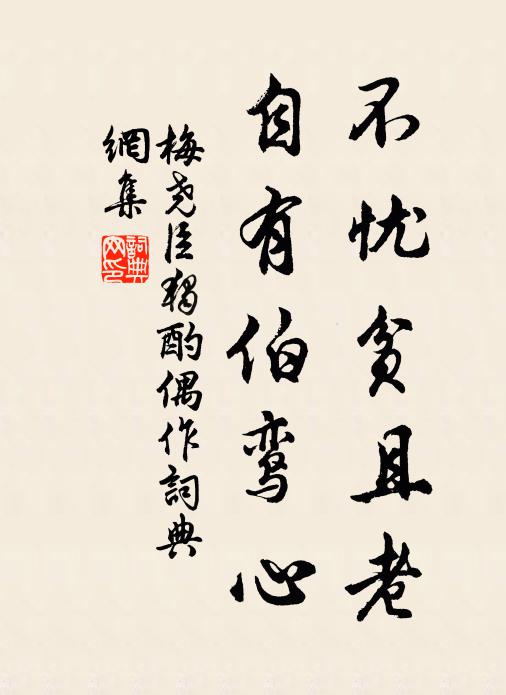 不忧贫且老
自有伯鸾心
梅尧臣独酌偶作词典
網集
詞典
网印